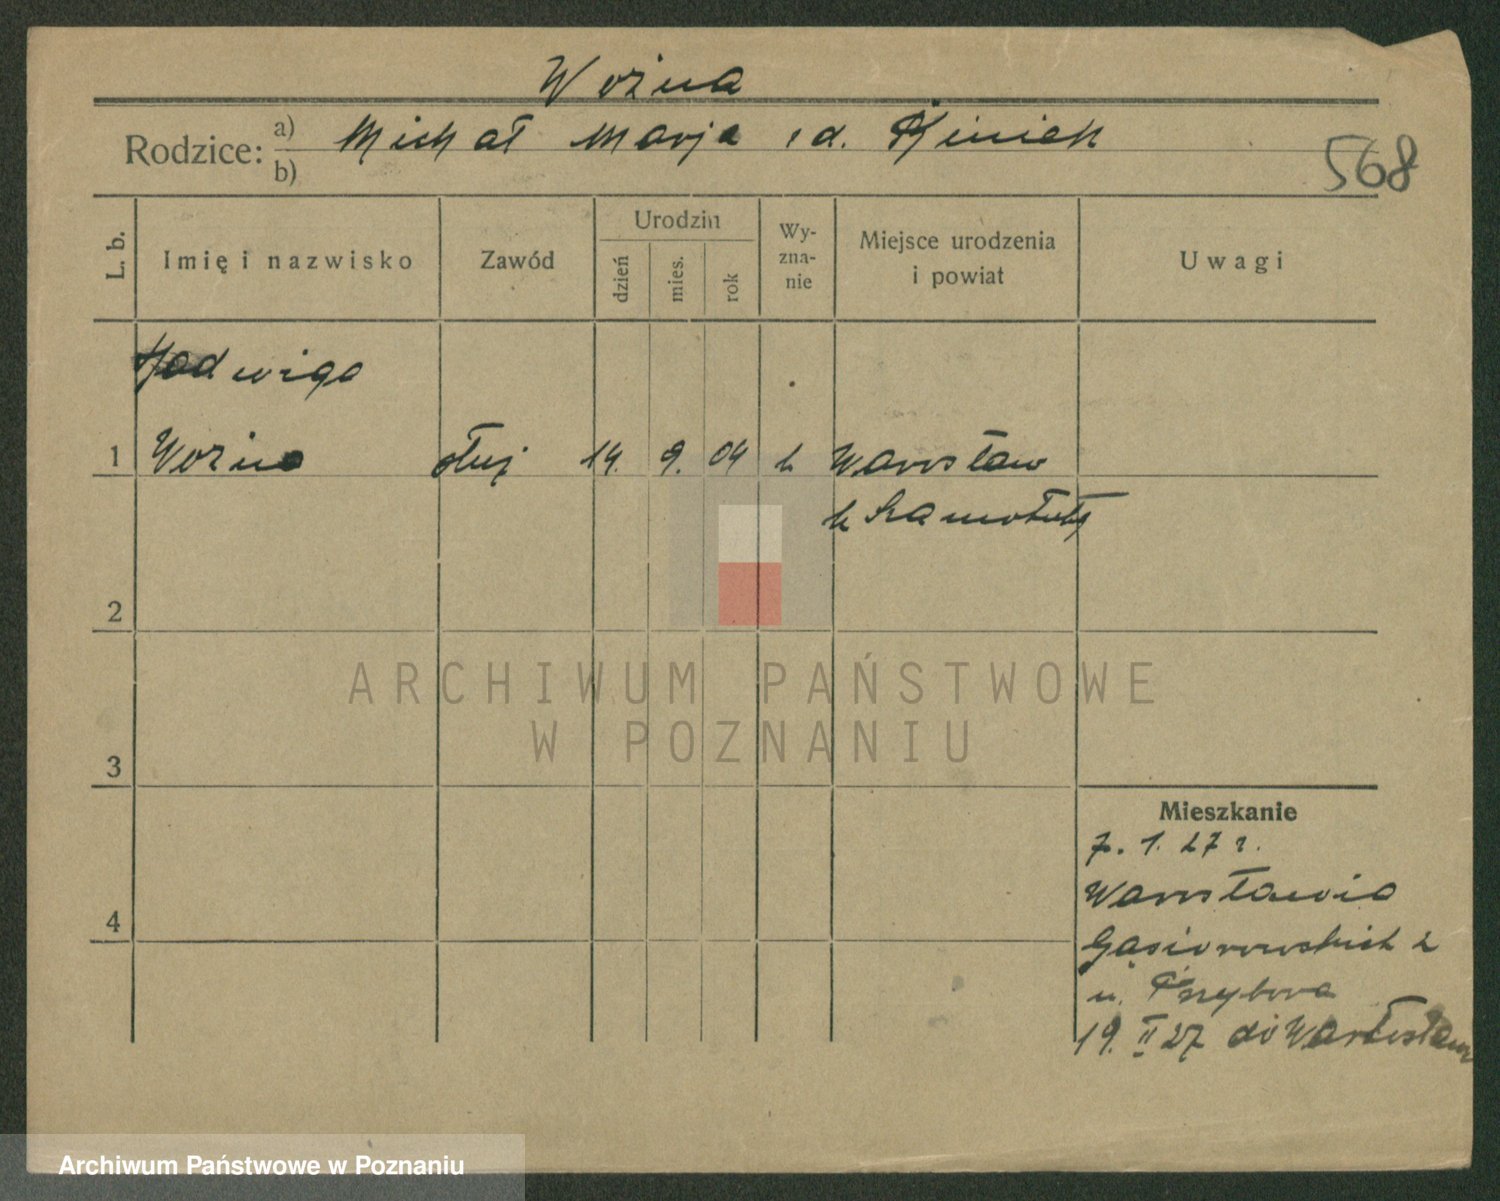 Woźna
Rodzice: a) Michał Marja
b)
568
L. b.
Imię i nazwisko
Zawód
Urodzin
dzień
mies.
rok
Wy-
zna-
nie
Miejsce urodzenia
i powiat
Uwagi
Jadwiga
1 Woźna służ 14. 9. 04 k Warosław
k Szamotuły
2
3
4
Mieszkanie
7. 1. 27 r.
Warosławia
Gąsiorowskich 2
u. Przybora
19. II 27 do
ARCHIWUM PAŃSTWOWE
W POZNANIU
Archiwum Państwowe w Poznaniu